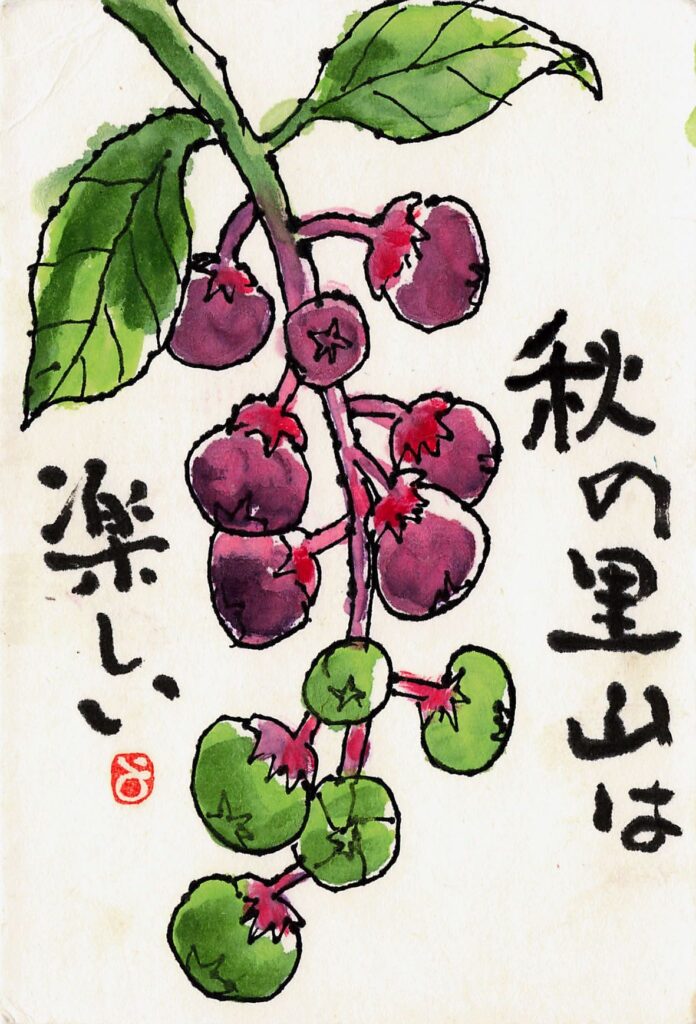 秋の里山は
楽しい